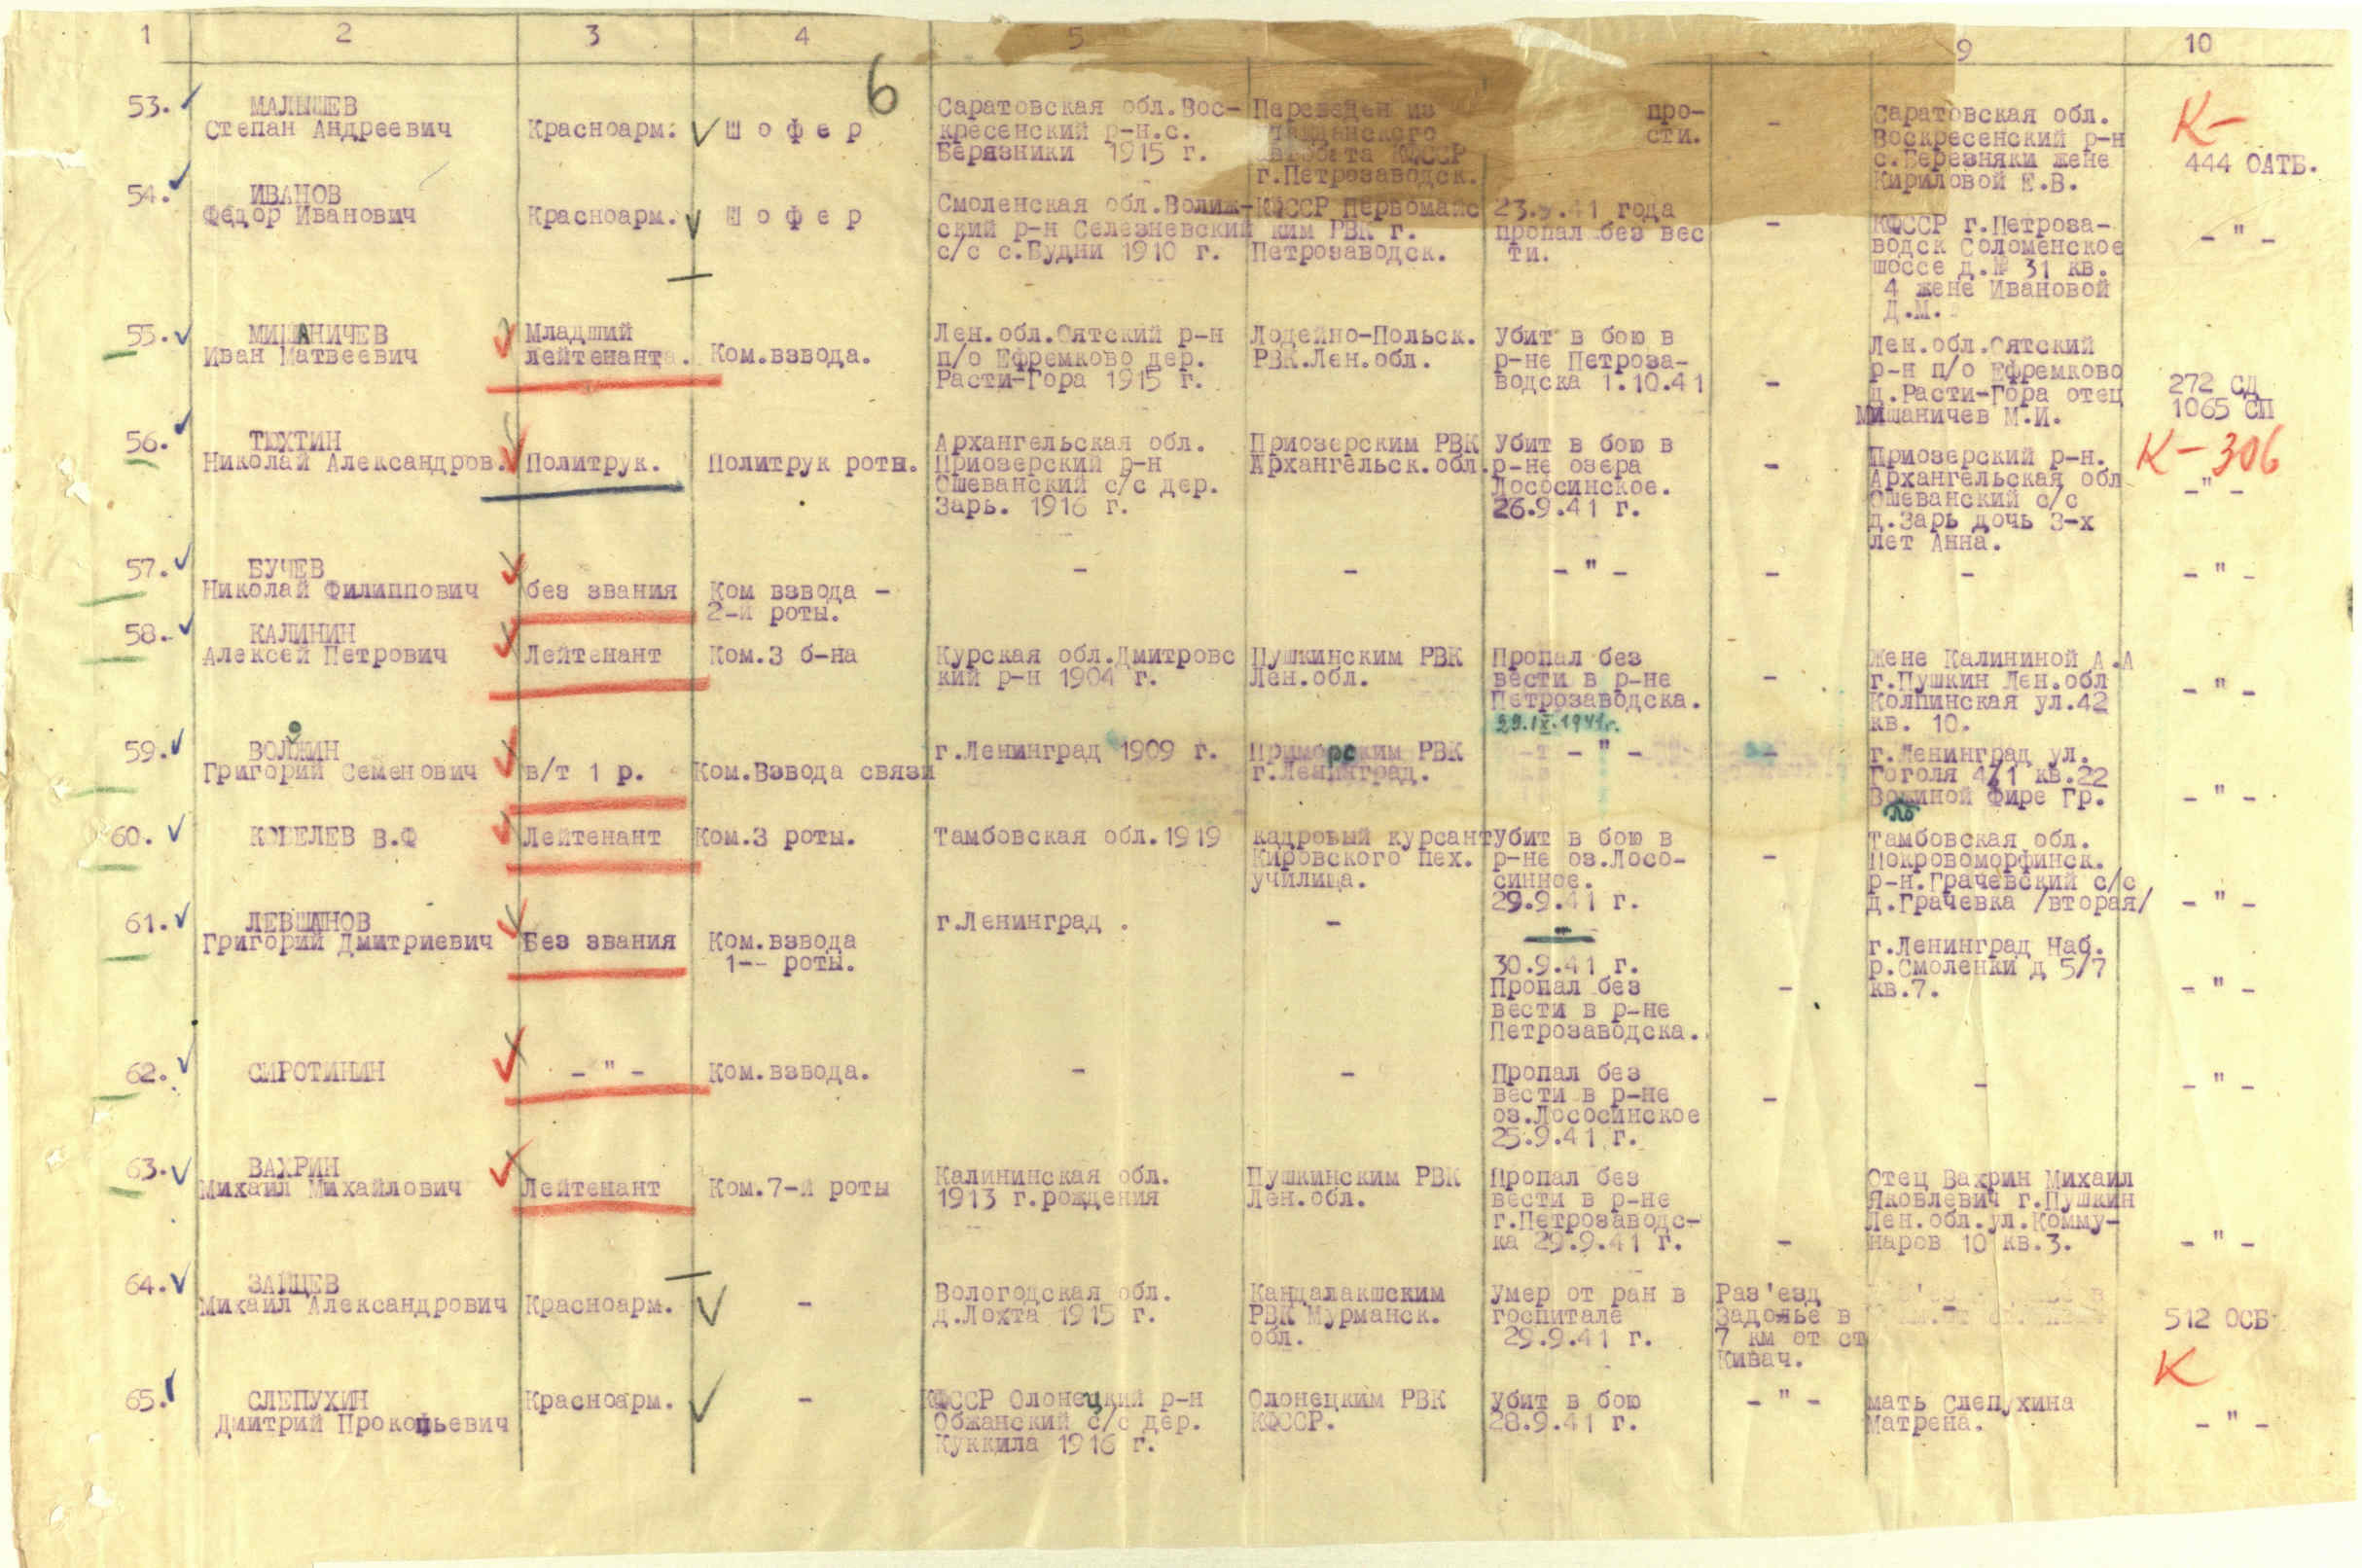 1 2 3 4 5 9 10
6
53. МАЛЫШЕВ
Степан Андреевич
Красноарм.
Ш о ф е р
Саратовская обл.Вос-
кресенский р-н.с.
Берязники 1915 г.
Переведен из
КФССР
г.Петрозаводск.
про-
сти.
-
Саратовская обл.
Воскресенский р-н
с.Березняки жене
Кириловой Е.В.
К-
444 ОАТБ.
54. ИВАНОВ
Федор Иванович
Красноарм.
Ш о ф е р
Смоленская обл.Волиж-
ский р-н Селезневский
с/с с.Будни 1910 г.
КФССР Первомайс
ким РВК г.
Петрозаводск.
23.9.41 года
пропал без вес
ти.
-
КФССР г.Петроза-
водск Соломенское
шоссе д.№ 31 кв.
4 жене Ивановой
Д.М.
- " -
55. МИШАНИЧЕВ
Иван Матвеевич
Младший
лейтенанта.
Ком.взвода.
Лен.обл.Оятский р-н
п/о Ефремково дер.
Расти-Гора 1915 г.
Лодейно-Польск.
РВК.Лен.обл.
Убит в бою в
р-не Петроза-
водска 1.10.41
-
Лен.обл.Оятский
р-н п/о Ефремково
д.Расти-Гора отец
Мишаничев М.И.
272 СД
1065 СП
56. ТЮХТИН
Николай Александров.
Политрук.
Политрук роты.
Архангельская обл.
Приозерский р-н
Ошеванский с/с дер.
Зарь. 1916 г.
Приозерским РВК
Архангельск.обл.
Убит в бою в
р-не озера
Лососинское.
26.9.41 г.
-
Приозерский р-н.
Архангельская обл
Ошеванский с/с
д.Зарь дочь 3-х
лет Анна.
К-306
-"-
57. БУЧЕВ
Николай Филиппович
без звания
Ком взвода -
2-й роты.
-
-
- " -
-
-
- " -
58. КАЛИНИН
Алексей Петрович
Лейтенант
Ком.3 б-на
Курская обл.Дмитровс
кий р-н 1904 г.
Пушкинским РВК
Лен.обл.
Пропал без
вести в р-не
Петрозаводска.
29.IX.1941г.
-
Жене Калининой А.А
г.Пушкин Лен.обл
Колпинская ул.42
кв. 10.
- " -
59. ВОЛЖИН
Григорий Семенович
в/т 1 р.
Ком.Взвода связи
г.Ленинград 1909 г.
Приморским РВК
г.Ленинград.
- " -
-
г.Ленинград ул.
Гоголя 4/1 кв.22
Фире Гр.
- " -
60. КОБЕЛЕВ В.Ф
Лейтенант
Ком.3 роты.
Тамбовская обл.1919
кадровый курсант
Кировского пех.
училища.
убит в бою в
р-не оз.Лосо-
синное.
29.9.41 г.
-
Тамбовская обл.
Покровоморфинск.
р-н.Грачевский с/с
д.Грачевка /вторая/
- " -
61. ЛЕВШАНОВ
Григорий Дмитриевич
Без звания
Ком.взвода
1-- роты.
г.Ленинград .
-
30.9.41 г.
Пропал без
вести в р-не
Петрозаводска.
-
г.Ленинград Наб.
р.Смоленки д 5/7
кв.7.
- " -
62. СИРОТИНИН
- " -
Ком.взвода.
-
-
Пропал без
вести в р-не
оз.Лососинское
25.9.41 г.
-
-
- " -
63. ВАХРИН
Михаил Михайлович
Лейтенант
Ком.7-й роты
Калининская обл.
1913 г.рождения
Пушкинским РВК
Лен.обл.
Пропал без
вести в р-не
г.Петрозаводс-
ка 29.9.41 г.
-
Отец Вахрин Михаил
Яковлевич г.Пушкин
Лен.обл.ул.Комму-
наров 10 кв.3.
- " -
64. ЗАЙЦЕВ
Михаил Александрович
Красноарм.
-
Вологодская обл.
д.Лохта 1915 г.
Кандалакшским
РВК Мурманск.
обл.
Умер от ран в
госпитале
29.9.41 г.
Раз'езд
Задолье в
7 км от ст
Кивач.
-
512 ОСБ
К
65. СЛЕПУХИН
Дмитрий Прокопьевич
Красноарм.
-
КФССР Олонецкий р-н
Обжанский с/с дер.
Куккила 1916 г.
Олонецким РВК
КФССР.
Убит в бою
28.9.41 г.
- " -
мать Слепухина
Матрена.
- " -